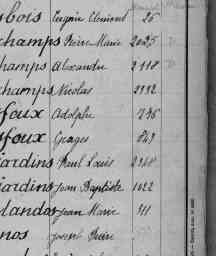 bois Eugène Clément 26
champs Pierre Marie 2025
champs Alexandre 2118
champs Nicolas 2192
foux Adolphe 736
foux Georges 843
jardins Paul Louis 2268
jardins Jean Baptiste 1022
landos Jean Marie 311
nos Joseph Pierre